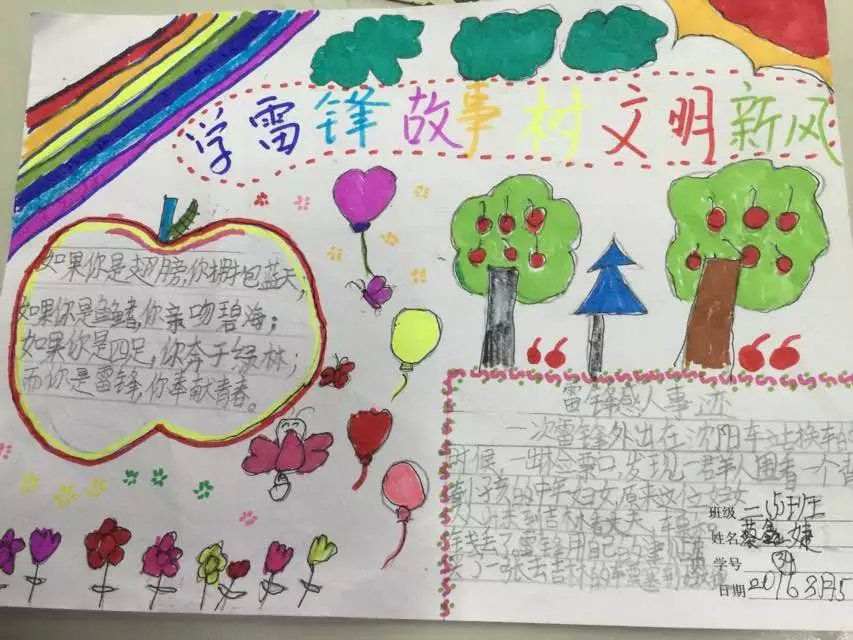 学雷锋故事树文明新风
如果你是翅膀,你拥包蓝天,
如果你是鱼鳍,你亲吻碧海;
如果你是四足,你奔于绿林;
而你是雷锋,你奉献青春。
雷锋感人事迹
一次雷锋外出在沈阳车站换车的
时候,一出检票口,发现一群人围着一个背
着小孩的中年妇女,原来这位妇女
从 来到吉林看丈夫,车
钱丢了。雷锋用自己
买了一张去吉林的车票塞到
班级 二(5)班
姓名 蔡鑫婕
学号
日期 2016 3月5